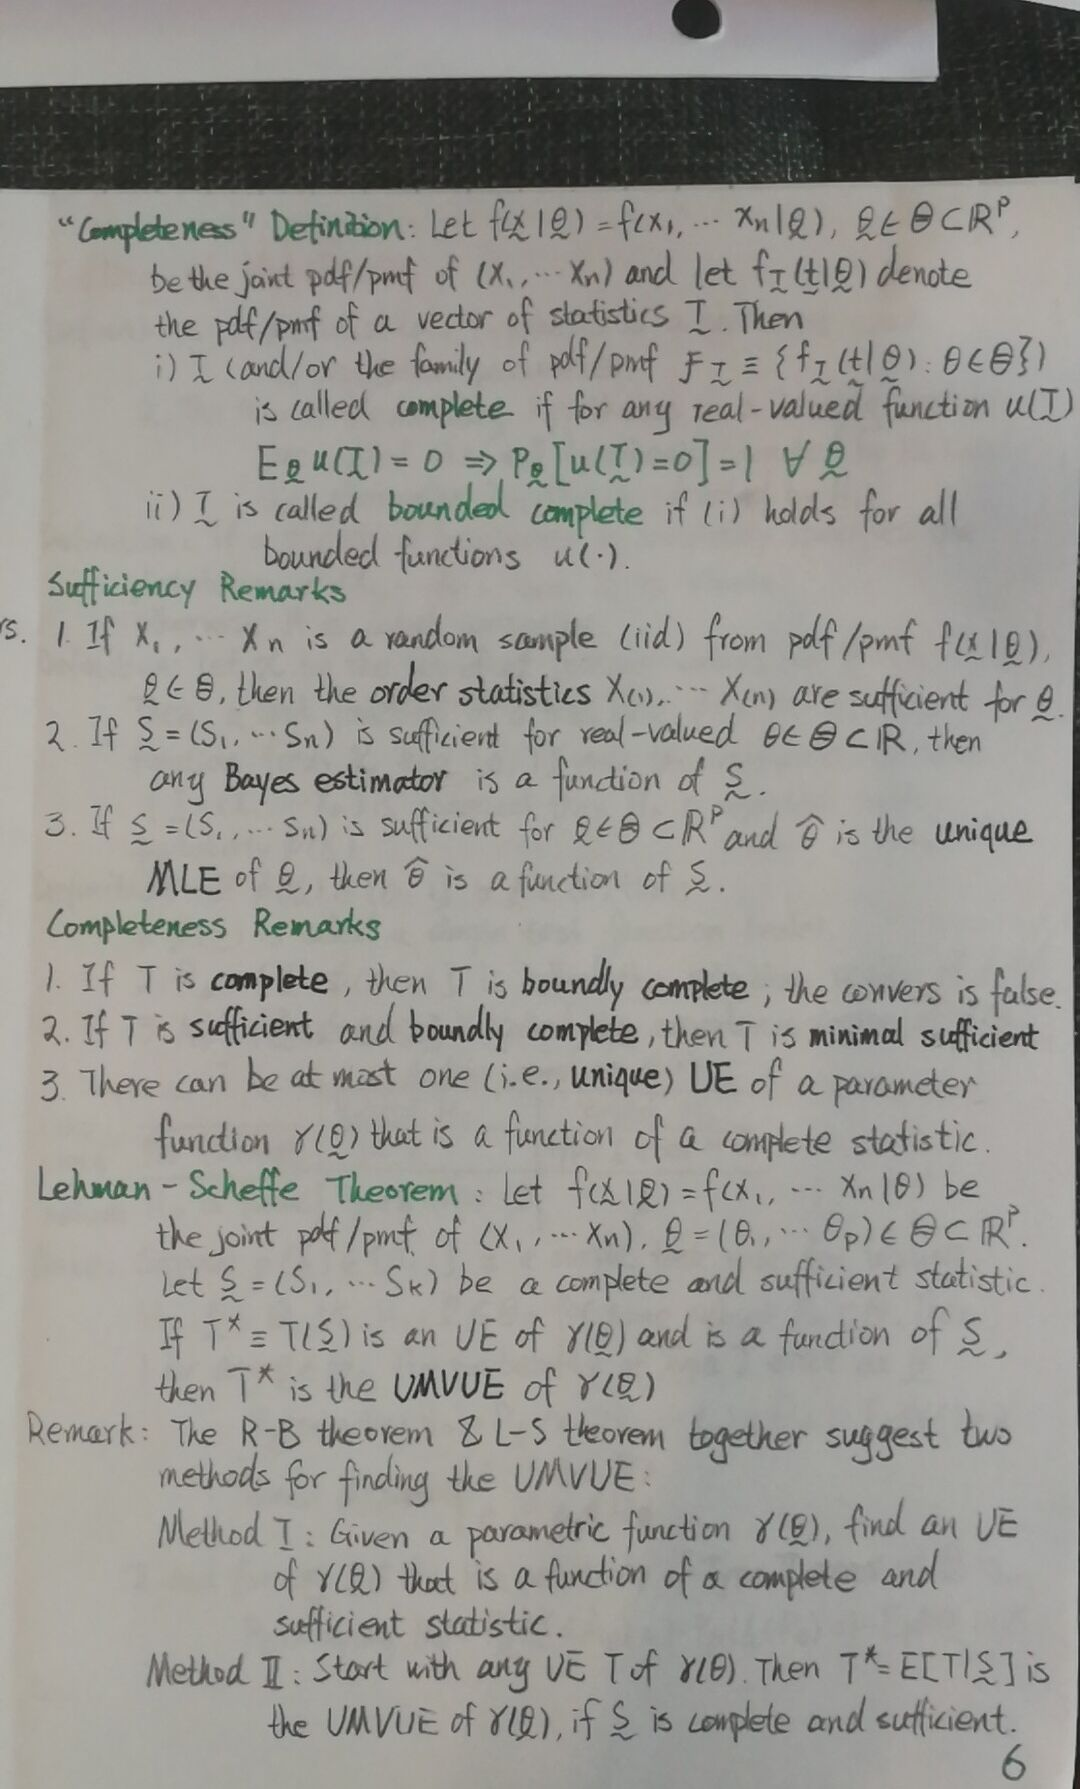 "Completeness" Definition: Let f(x̰|θ̰) = f(x₁, ··· xₙ|θ̰), θ̰ ∈ Θ ⊂ ℝᵖ,
be the joint pdf/pmf of (X₁, ··· Xₙ) and let f_T̰(t̰|θ̰) denote
the pdf/pmf of a vector of statistics T̰. Then
i) T̰ (and/or the family of pdf/pmf F_T̰ ≡ {f_T̰(t̰|θ̰): θ∈Θ})
is called complete if for any real-valued function u(T̰)
E_θ̰ u(T̰) = 0 ⇒ P_θ̰[u(T̰)=0]=1 ∀ θ̰
ii) T̰ is called bounded complete if (i) holds for all
bounded functions u(·).
Sufficiency Remarks
rs. 1. If X₁, ··· Xₙ is a random sample (iid) from pdf/pmf f(x̰|θ̰),
θ̰ ∈ Θ, then the order statistics X₍₁₎, ··· X₍ₙ₎ are sufficient for θ̰.
2. If S̰ = (S₁, ··· Sₙ) is sufficient for real-valued θ∈Θ⊂ℝ, then
any Bayes estimator is a function of S̰.
3. If S̰ = (S₁, ··· Sₙ) is sufficient for θ̰∈Θ⊂ℝᵖ and θ̂ is the unique
MLE of θ̰, then θ̂ is a function of S̰.
Completeness Remarks
1. If T is complete, then T is boundly complete; the convers is false.
2. If T is sufficient and boundly complete, then T is minimal sufficient
3. There can be at most one (i.e., unique) UE of a parameter
function γ(θ̰) that is a function of a complete statistic.
Lehman-Scheffe Theorem: Let f(x̰|θ̰) = f(x₁, ··· xₙ|θ) be
the joint pdf/pmf of (X₁, ··· Xₙ), θ̰ = (θ₁, ··· θₚ) ∈ Θ ⊂ ℝᵖ.
Let S̰ = (S₁, ··· Sₖ) be a complete and sufficient statistic.
If T* ≡ T(S̰) is an UE of γ(θ̰) and is a function of S̰,
then T* is the UMVUE of γ(θ̰)
Remark: The R-B theorem & L-S theorem together suggest two
methods for finding the UMVUE:
Method I: Given a parametric function γ(θ̰), find an UE
of γ(θ̰) that is a function of a complete and
sufficient statistic.
Method II: Start with any UE T of γ(θ). Then T* = E[T|S̰] is
the UMVUE of γ(θ̰), if S̰ is complete and sufficient.
6